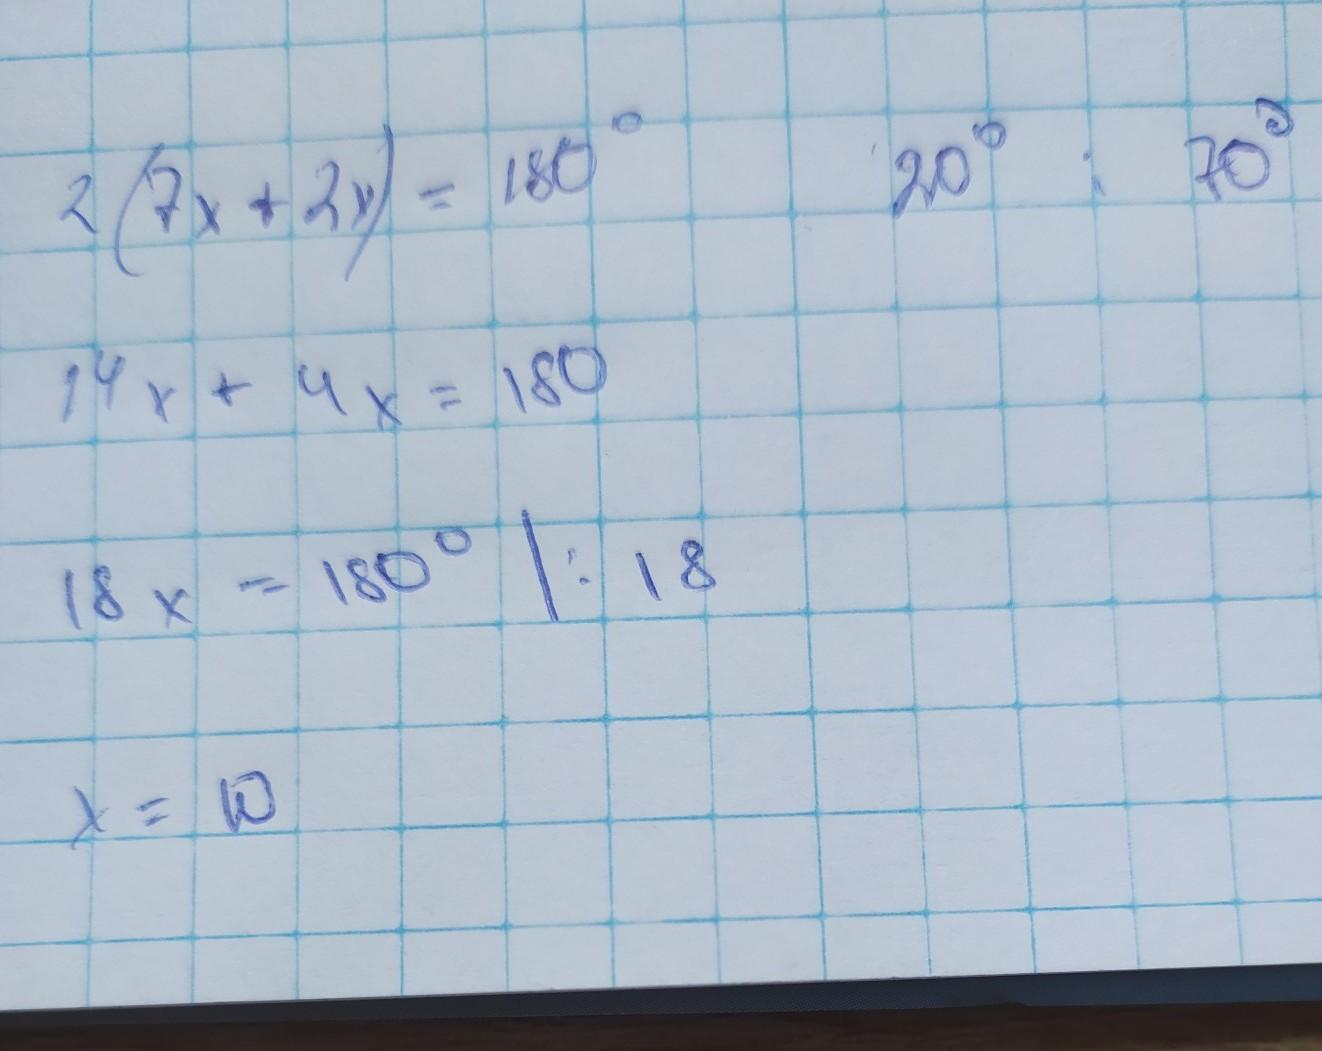 2(7x + 2x) = 180° 20° : 70°
14x + 4x = 180
18x = 180° |: 18
x = 10